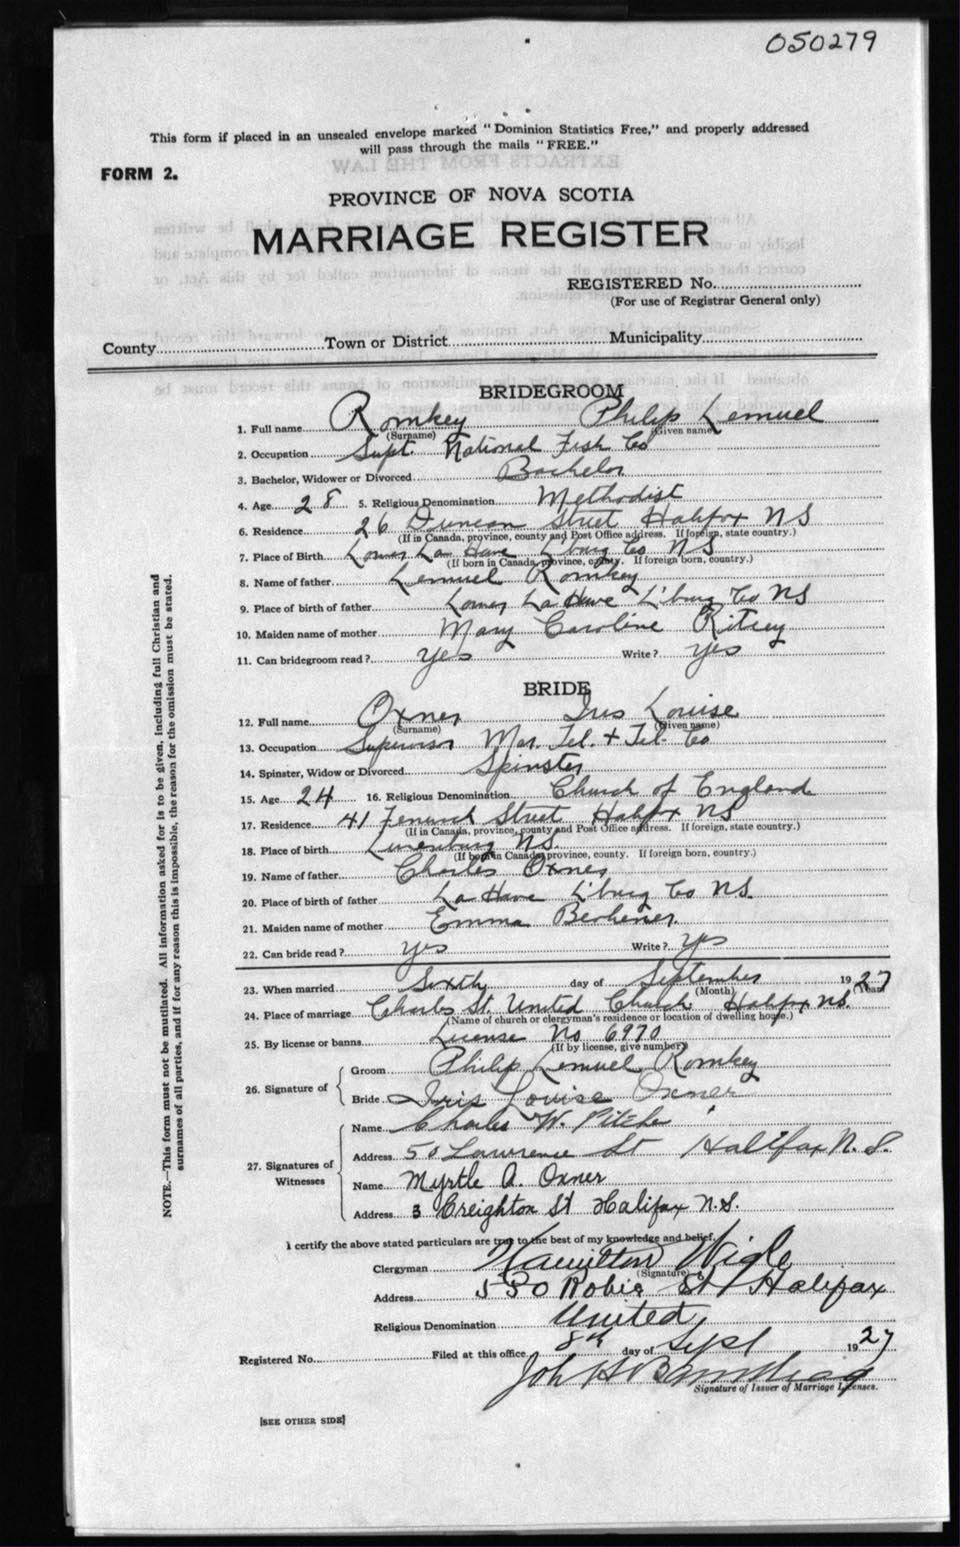 050279
This form if placed in an unsealed envelope marked "Dominion Statistics Free," and properly addressed
will pass through the mails "FREE."
FORM 2.
PROVINCE OF NOVA SCOTIA
MARRIAGE REGISTER
REGISTERED No.
(For use of Registrar General only)
County Town or District Municipality
BRIDEGROOM
1. Full name Romkey Philip Lemuel
(Surname) (Given name)
2. Occupation Supt. National Fish Co
3. Bachelor, Widower or Divorced Bachelor
4. Age 28 5. Religious Denomination Methodist
6. Residence 26 Duncan Street Halifax NS
(If in Canada, province, county and Post Office address. If foreign, state country.)
7. Place of Birth Lower La Have L'burg Co NS
(If born in Canada, province, county. If foreign born, country.)
8. Name of father Lemuel Romkey
9. Place of birth of father Lower La Have L'burg Co NS
10. Maiden name of mother Mary Caroline Ritcey
11. Can bridegroom read? yes Write? yes
BRIDE
12. Full name Oxner Iris Louise
(Surname) (Given name)
13. Occupation Supervisor Mar. Tel. + Tel. Co
14. Spinster, Widow or Divorced Spinster
15. Age 24 16. Religious Denomination Church of England
17. Residence 41 Street Halifax NS
(If in Canada, province, county and Post Office address. If foreign, state country.)
18. Place of birth Lunenburg NS.
(If born in Canada, province, county. If foreign born, country.)
19. Name of father Charles Oxner
20. Place of birth of father La Have L'burg Co NS.
21. Maiden name of mother Emma
22. Can bride read? yes Write? yes
23. When married Sixth day of September 1927
(Month) (Year)
24. Place of marriage Charles St. United Church Halifax NS.
(Name of church or clergyman's residence or location of dwelling house.)
25. By license or banns License No 6970
(If by license, give number)
26. Signature of Groom Philip Lemuel Romkey
Bride Iris Louise Oxner
27. Signatures of Witnesses Name Charles W. Pitcher
Address 50 Lawrence St Halifax N.S.
Name Myrtle A. Oxner
Address 3 Creighton St Halifax N.S.
I certify the above stated particulars are true to the best of my knowledge and belief.
Clergyman Hamilton Wigle
(Signature)
Address 530 Robie St Halifax
Religious Denomination United
Registered No. Filed at this office 8th day of Sept 1927
Signature of Issuer of Marriage Licenses.
[SEE OTHER SIDE]
NOTE.—This form must not be mutilated. All information asked for is to be given, including full Christian and
surnames of all parties, and if for any reason this is impossible, the reason for the omission must be stated.